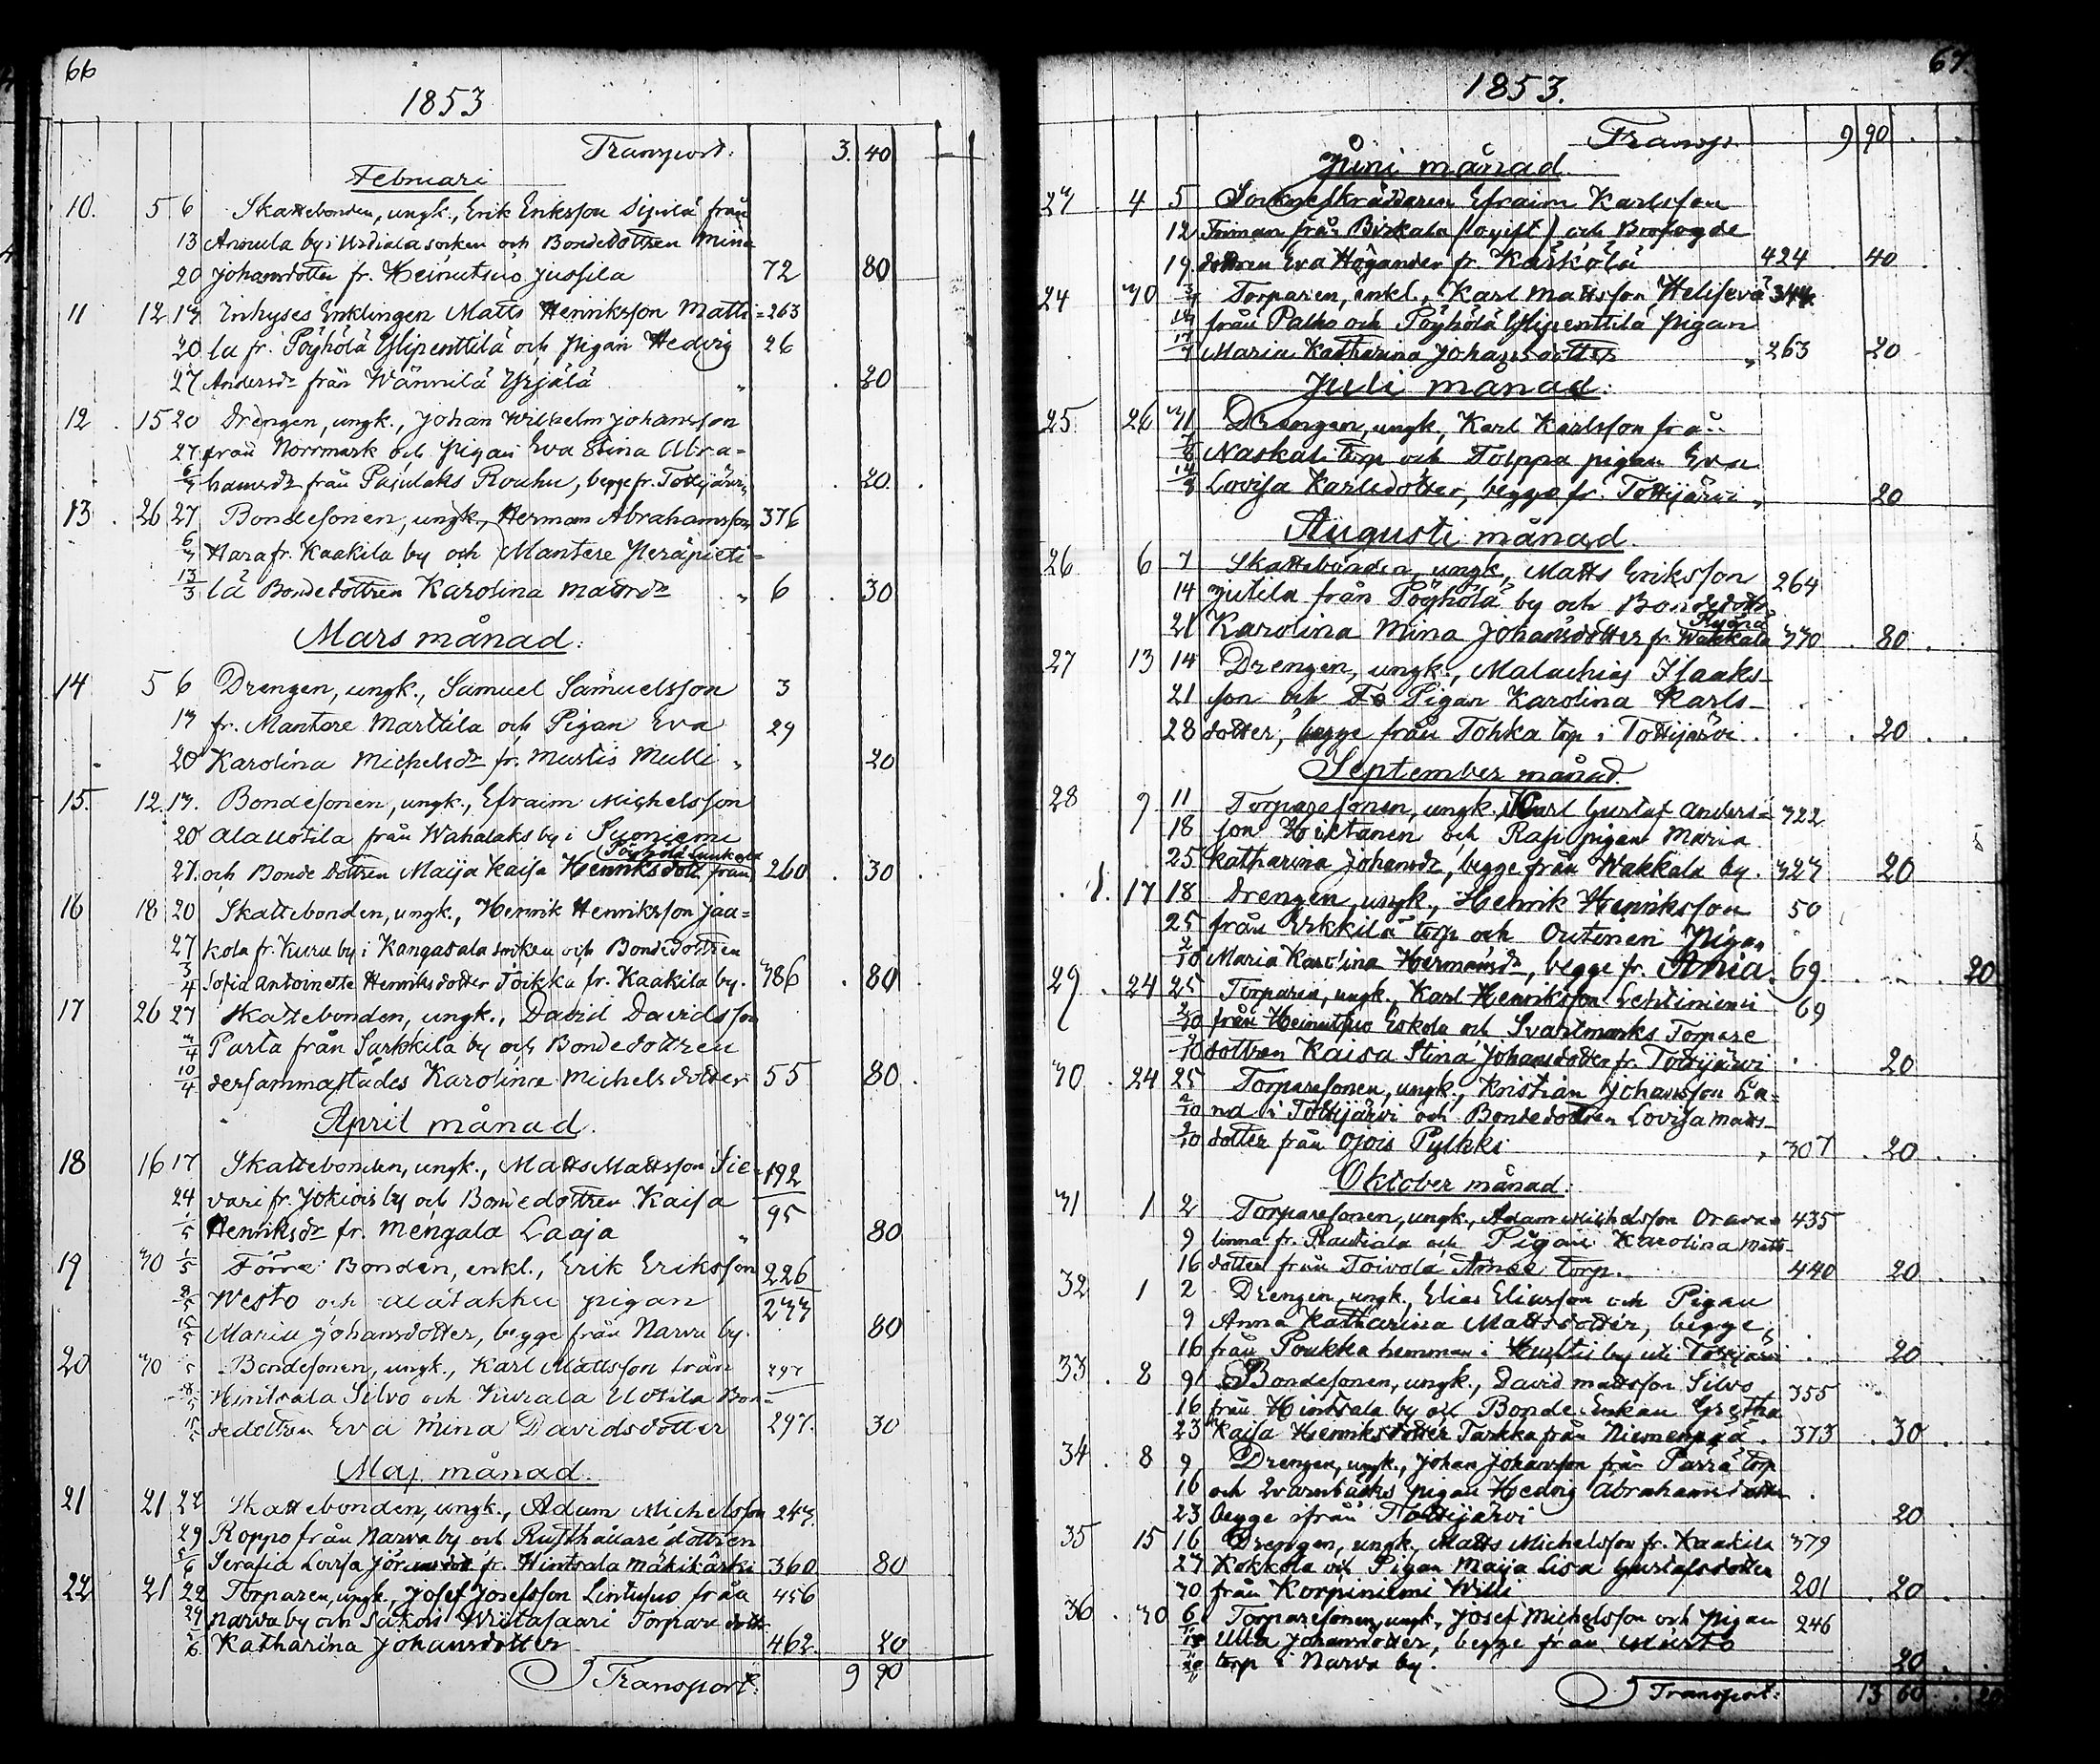 66
1853
Transport. 3. 40
Februari
10. 5 6 Skattebonden, ungk., Erik Eriksson Sipilä från
13 Annula by i Urdiala socken och Bondedottren Mina
20 Johansdotter fr. Heinutsuo Jussila 72 80
11 12 13 Inhyses Enklingen Matts Henriksson Matti= 263
20 la fr. Pöyhölä Ylipenttilä och pigan Hedvig 26
27 Andersdr från Wännilä Yrjälä " 20
12 15 20 Drengen, ungk., Johan Wilhelm Johansson
27 från Norrmark och pigan Eva Stina Abra=
6/3 hamsdr från Pajulaks Rouhu, begge fr. Tottijärvi, 20
13 26 27 Bondesonen, ungk., Herman Abrahamsson 376
6/3 Hara fr. Kaakila by och Mantere Peräpieti=
13/3 lä Bondedottren Karolina Matsdr " 6 30
Mars månad:
14 5 6 Drengen, ungk., Samuel Samuelsson 3
13 fr. Mantere Marttila och Pigan Eva 29
20 Karolina Michelsdr fr. Mustis Mulli " 20
15. 12. 13. Bondesonen, ungk., Efraim Michelsson
20 Alauotila från Wahalaks by i Suoniemi
Pöyhölä Luukala
27. och Bonde dottren Maija Kaisa Henriksdott. från 260 30
16 18 20 Skattebonden, ungk., Henrik Henriksson Jaa=
27 kola fr. Kuru by i Kangasala socken och Bondedottren
3/4 Sofia Antoinette Henriksdotter Törkka fr. Kaakila by. 386 80
17 26 27 Skattebonden, ungk., David Davidsson
3/4 Parta från Sarkkila by och Bondedottren
10/4 dersammastädes Karolina Michelsdotter 55 80
April månad.
18 16 17 Skattebonden, ungk., Matts Mattsson Sie= 192
24 vari fr. Jokiois by och Bondedottren Kaisa 95
1/5 Henriksdr fr. Mengala Laaja " 80
19 30 1/5 Förre Bonden, enkl., Erik Eriksson 226
8/5 Westo och Alatakku pigan 233
15/5 Maria Johansdotter, begge från Narva by. 80
20 30 1/5 Bondesonen, ungk., Karl Mattsson från 297
8/5 Hintsala Silvo och Kurala Uotila Bon=
15/5 dedottren Eva Mina Davidsdotter 297. 30
Maj månad.
21 21 22 Skattebonden, ungk., Adam Michelsson 243
29 Roppo från Narva by och Rusthållare dottren
5/6 Serafia Lovisa fr. Hintsala Mäkikärki 360 80
22 21 22 Torparen, ungk., Josef Josefsson Lintusuo från 456
29 Narva by och Sakois Wiitasaari Torpare dottr.
5/6 Katharina Johansdotter 462. 20
Transport: 9 90
67.
1853.
Transp. 9 90
Juni månad.
23 4 5 Sockneskräddaren Efraim Karlsson
12 Toiman från Birkala (ogift) och Brofogde
19 dottren Eva Högander fr. Kärkölä 424 40
24 30 3/7 Torparen, enkl., Karl Mattsson Helisevä 344
från Palho och Pöyhölä Ylipenttilä pigan
17/7 Maria Katharina Johansdotter " 263 20
Juli månad:
25 26 31 Drengen, ungk, Karl Karlsson från
7/8 Naskali torp och Tolppa pigan Eva
14/8 Lovisa Karlsdotter, begge fr. Tottijärvi " 20
Augusti månad.
26 6 7 Skattebonden, ungk., Matts Eriksson 264
14 Jutila från Pöyhölä by och Bondedottr.
21 Karolina Mina Johansdotter fr. Wakkala 330 80
27 13 14 Drengen, ungk., Malachias Isaaks-
21 son och Pigan Karolina Karls-
28 dotter, begge från Tohka torp i Tottijärvi. 20
September månad.
28 9 11 Torparesonen, ungk. Karl Gustaf Anders= 322
18 son Hietanen och Rasi pigan Maria
25 Katharina Johansdr, begge från Wakkala by. 323 20
1. 17 18 Drengen, ungk., Henrik Henriksson 50
25 från Erkkilä torp och Outinen Pigan
2/10 Maria Karolina Hermansdr, begge fr. Ania. 69. 20
29 24 25 Torparen, ungk., Karl Henriksson Lehtiniemi 69
2/10 från Heinutsuo Eskola och Svartmarks Torpare
9/10 dottren Kaisa Stina Johansdotter fr. Tottijärvi 20
30 24 25 Torparesonen, ungk., Kristian Johansson La=
2/10 nd i Tottijärvi och Bondedottren Lovisa Matts-
9/10 dotter från Ojois Pylkki , 307 20
Oktober månad:
31 1 2 Torparesonen, ungk., Adam Michelsson Orava= 435
9 linna fr. Rautiala och Pigan Karolina Matts-
16 dotter från Toivola torp. 440 20
32 1 2 Drengen, ungk, Elias Eliasson och Pigan
9 Anna Katharina Mattsdotter, begge
16 från Poukka hemman i by uti Tottijärvi 20
33 8 9 Bondesonen, ungk., David Mattsson Silvo 355
16 från Hintsala by och Bonde Enkan Gretha
23 Kaisa Henriksdotter Tarkka från Niemenpää. 373 30
34 8 9 Drengen, ungk., Johan Johansson från Parra torp
16 och Qvarnbacks pigan Hedvig Abrahamsdotter
23 begge ifrån Tottijärvi 20
35 15 16 Drengen, ungk., Matts Michelsson fr. Kaakila 379
23 Kokkola och Pigan Maija Lisa Gustafsdotter
30 från Korpiniemi Willi 201 20
36 30 6/11 Torparesonen, ungk., Josef Michelsson och pigan 246
13/11 Ulla Johansdotter, begge från Murto
20/11 torp i Narva by. 20
Transport: 13 60 20